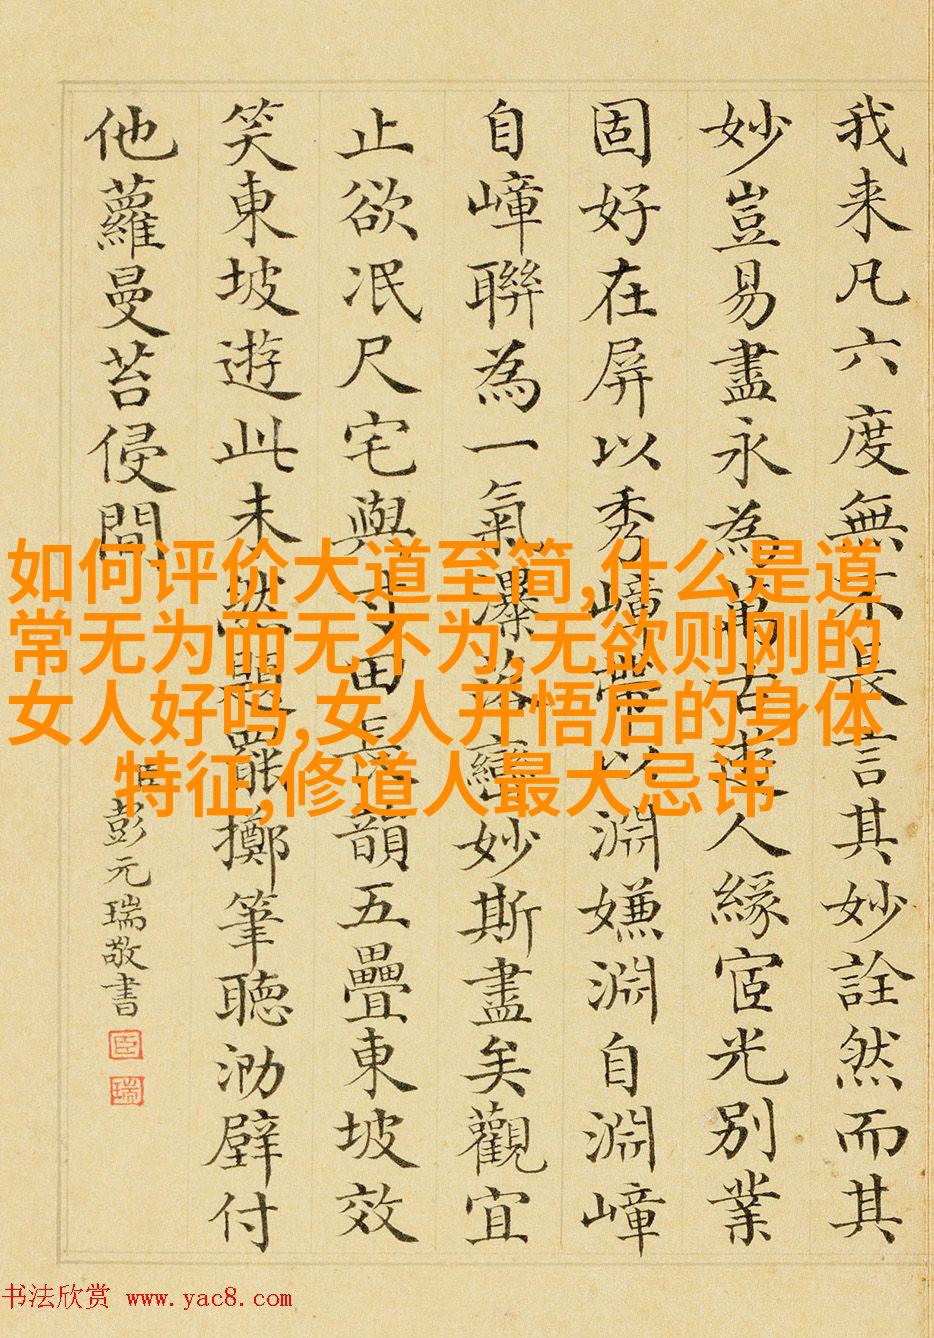 我来凡六度無不長言其妙詮然而其
妙豈易盡永為萬古達人緣宦光別業
固好在屏以秀嶂帶以淵嫌淵自淵嶂
自嶂聯為一氣瀑落巒妙斯盡矣觀宜
止欲泯尺宅與寸田長韻五疊東坡效
笑東坡遊此未然罷擲筆聽泐壁付
他蘿曼苔侵間
臣彭元瑞敬書
臣
瑞
如何评价大道至简,什么是道
常无为而无不为,无欲则刚的
女人好吗,女人开悟后的身体
特征,修道人最大忌讳
书法欣赏 www.yac8.com